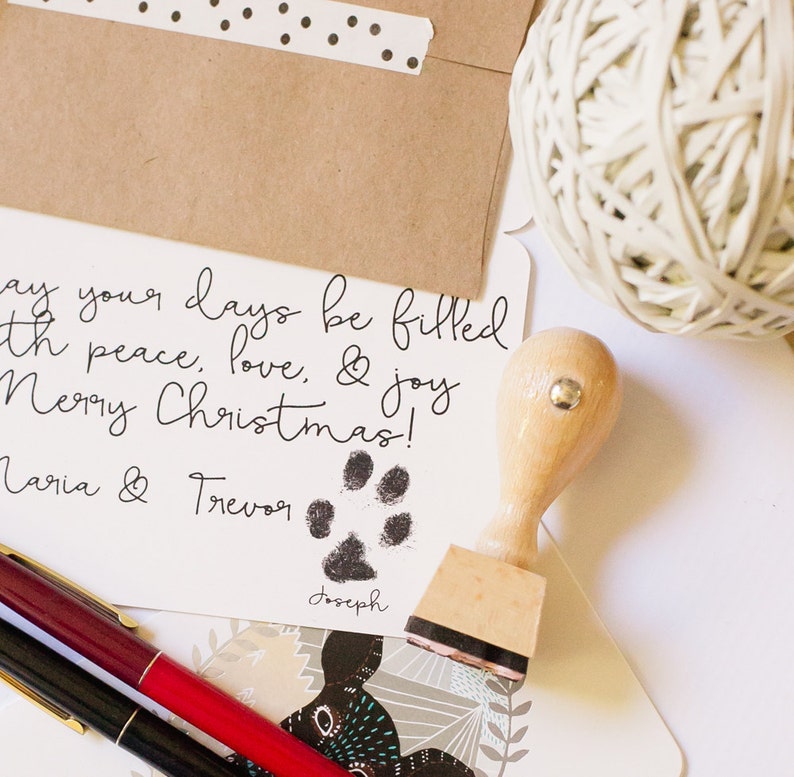 ay your days be filled
th peace, love, & joy
Merry Christmas!
Maria & Trevor
Joseph